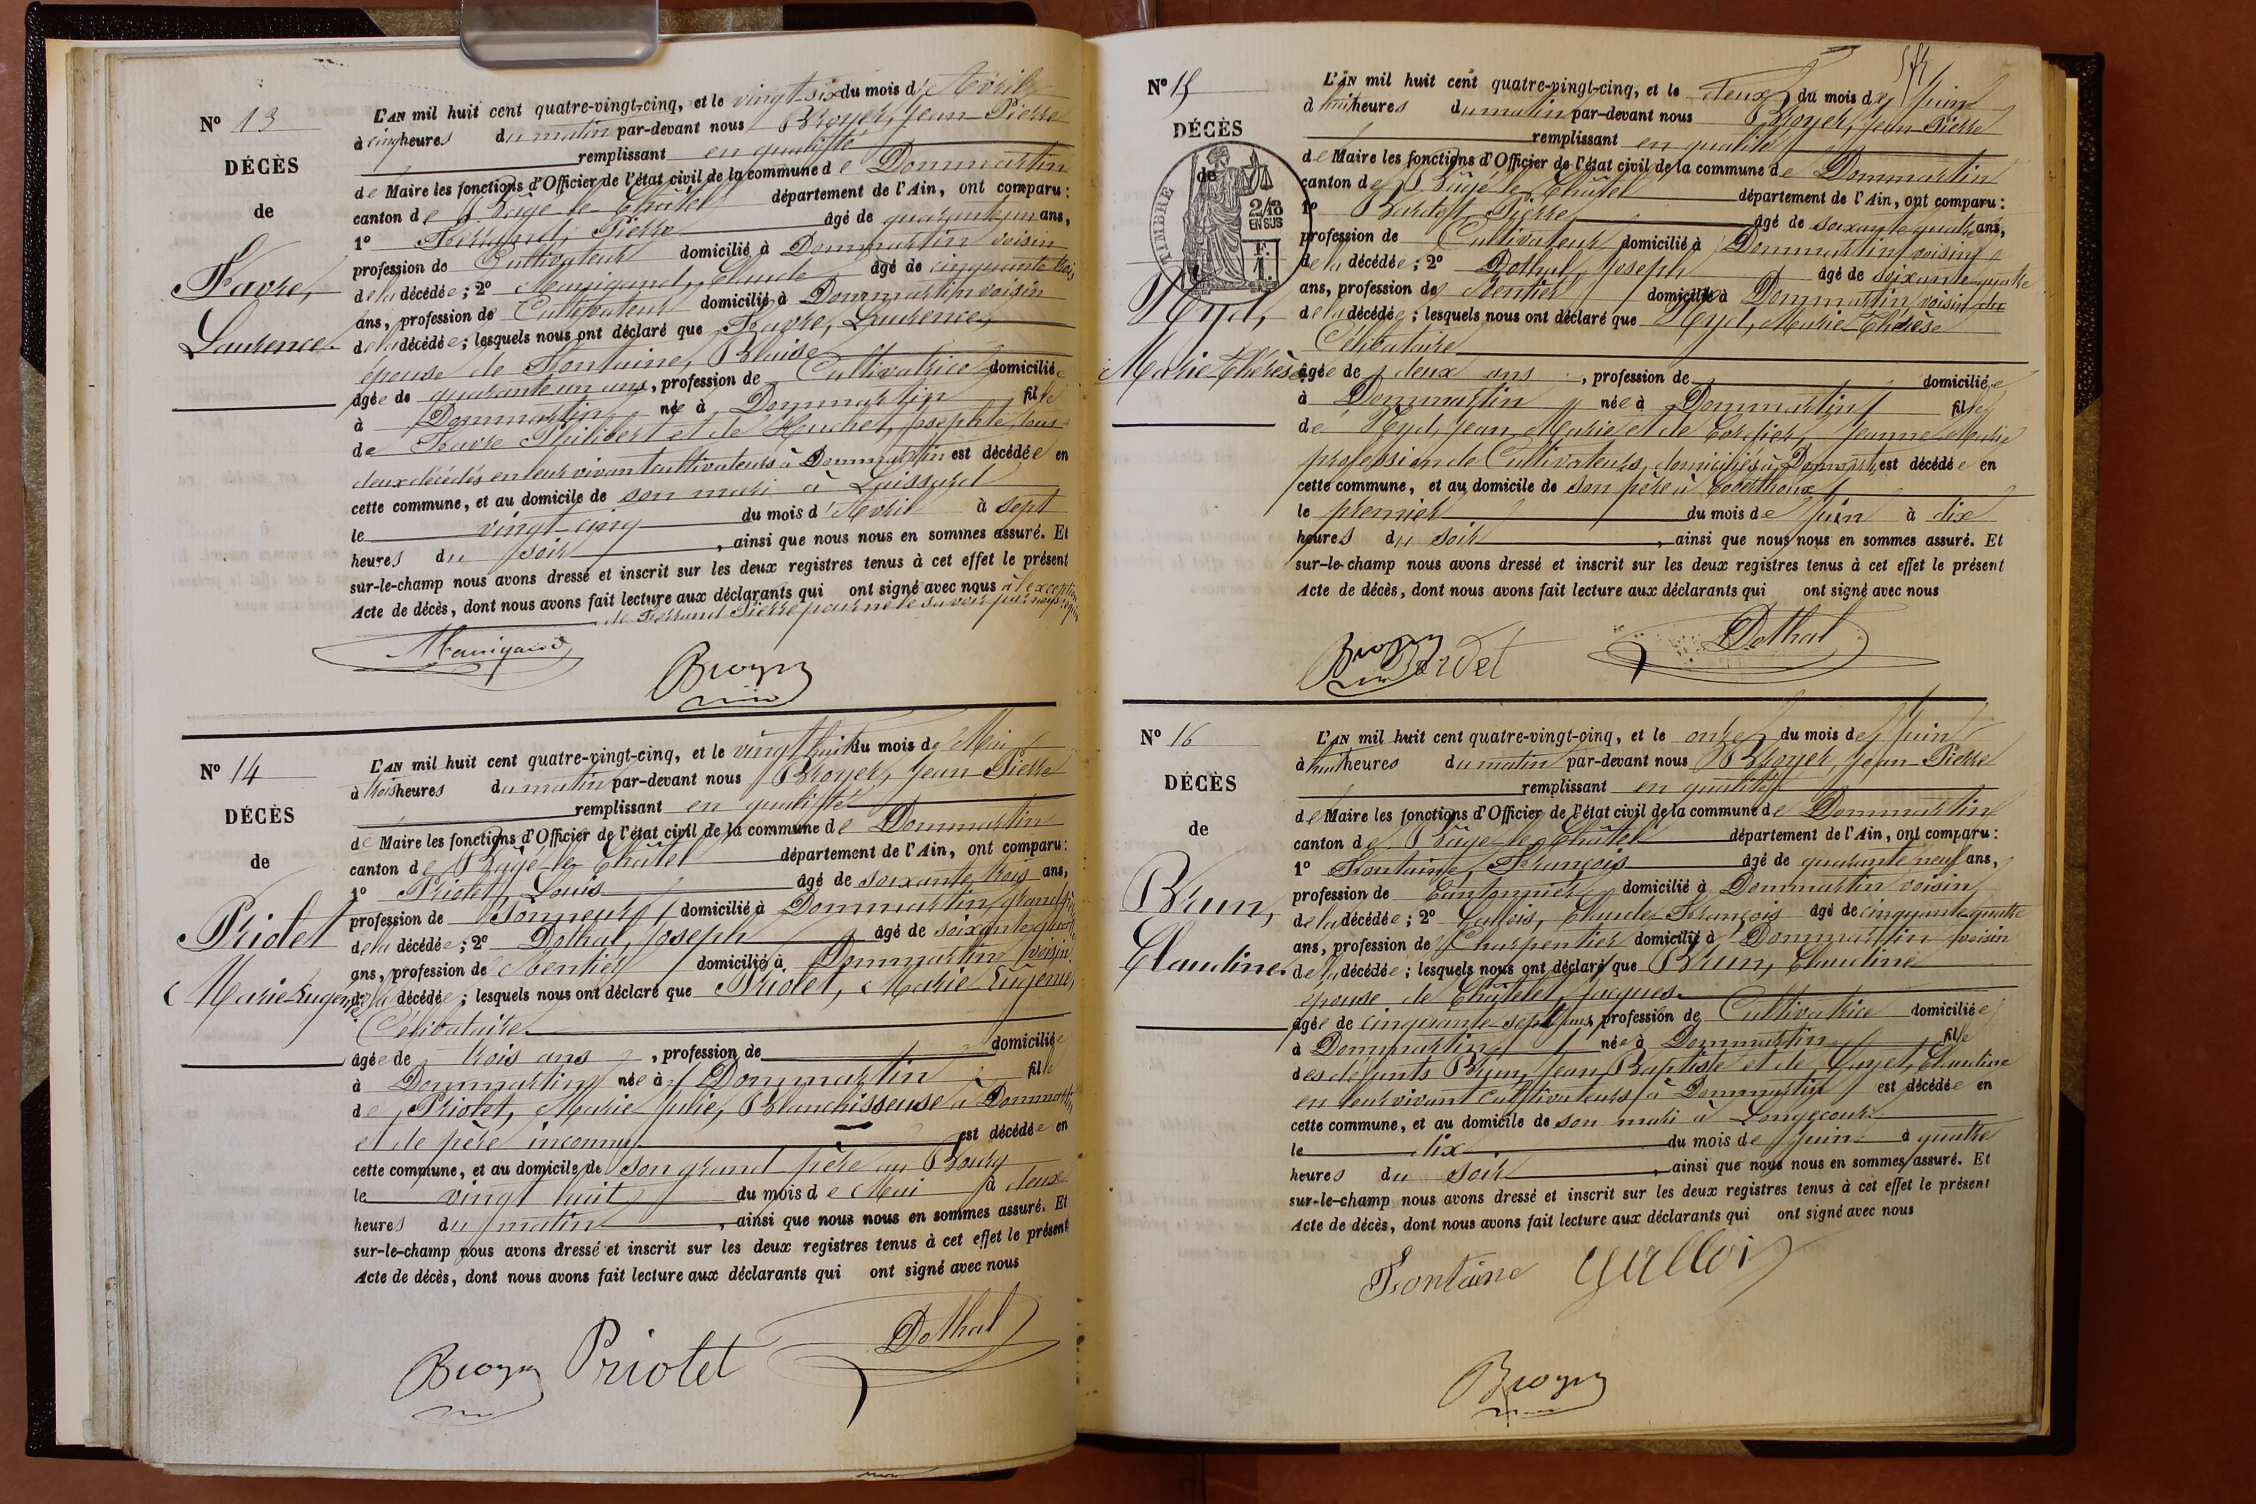 N° 13
DÉCÈS
de
Favre,
Laurence
L'AN mil huit cent quatre-vingt-cinq, et le vingt-six du mois d'Avril
à cinq heures du matin par-devant nous Broyer, Jean-Pierre
remplissant en qualité
de Maire les fonctions d'Officier de l'état civil de la commune de Dommartin
canton de Bâgé-le-Châtel département de l'Ain, ont comparu:
1° Ferrand, Pierre âgé de quarante un ans,
profession de Cultivateur domicilié à Dommartin voisin
de la décédée; 2° Mauigand, Claude âgé de cinquante trois
ans, profession de Cultivateur domicilié à Dommartin voisin
de la décédée; lesquels nous ont déclaré que Favre, Laurence,
épouse de Fontaine, Blaise
âgée de quarante un ans, profession de Cultivatrice domiciliée
à Dommartin née à Dommartin fille
de Favre Philibert et de Huchet, Josephte, tous
deux décédés en leur vivant cultivateurs à Dommartin est décédée en
cette commune, et au domicile de son mari à Laissard
le vingt-cinq du mois d'Avril à sept
heures du soir, ainsi que nous nous en sommes assuré. Et
sur-le-champ nous avons dressé et inscrit sur les deux registres tenus à cet effet le présent
Acte de décès, dont nous avons fait lecture aux déclarants qui ont signé avec nous à l'exception
de Ferrand Pierre pour ne le savoir par nous requis
Mauigand
Broyer
N° 14
DÉCÈS
de
Priolet
Marie Eugénie
L'AN mil huit cent quatre-vingt-cinq, et le vingt huit du mois de Mai
à trois heures du matin par-devant nous Broyer, Jean-Pierre
remplissant en qualité
de Maire les fonctions d'Officier de l'état civil de la commune de Dommartin
canton de Bâgé-le-Châtel département de l'Ain, ont comparu:
1° Priolet, Louis âgé de soixante trois ans,
profession de Sonneur domicilié à Dommartin, grand père
de la décédée; 2° Dothal, Joseph âgé de soixante quatre
ans, profession de Rentier domicilié à Dommartin voisin
de la décédée; lesquels nous ont déclaré que Priolet, Marie Eugénie,
Célibataire
âgée de trois ans, profession de domiciliée
à Dommartin née à Dommartin fille
de Priolet, Marie Julie, Blanchisseuse à Dommartin
et de père inconnu est décédée en
cette commune, et au domicile de son grand père au Bourg
le vingt huit du mois de Mai à deux
heures du matin, ainsi que nous nous en sommes assuré. Et
sur-le-champ nous avons dressé et inscrit sur les deux registres tenus à cet effet le présent
Acte de décès, dont nous avons fait lecture aux déclarants qui ont signé avec nous
Broyer Priolet Dothal
N° 15
DÉCÈS
de
TIMBRE
2/10
EN SUS
F.
1.
Hyd,
Marie-Thérèse
L'AN mil huit cent quatre-vingt-cinq, et le deux du mois de Juin
à huit heures du matin par-devant nous Broyer, Jean-Pierre
remplissant en qualité
de Maire les fonctions d'Officier de l'état civil de la commune de Dommartin
canton de Bâgé-le-Châtel département de l'Ain, ont comparu:
1° Bardet, Pierre âgé de soixante quatre ans,
profession de Cultivateur domicilié à Dommartin voisin
de la décédée; 2° Dothal, Joseph âgé de soixante quatre
ans, profession de Rentier domicilié à Dommartin voisin
de la décédée; lesquels nous ont déclaré que Hyd, Marie-Thérèse
Célibataire
âgée de deux ans, profession de domiciliée
à Dommartin née à Dommartin fille
de Hyd, Jean Marie et de Cordier, Jeanne-Marie
profession de Cultivateurs, domiciliés à Dommartin est décédée en
cette commune, et au domicile de son père à
le premier du mois de Juin à dix
heures du soir, ainsi que nous nous en sommes assuré. Et
sur-le-champ nous avons dressé et inscrit sur les deux registres tenus à cet effet le présent
Acte de décès, dont nous avons fait lecture aux déclarants qui ont signé avec nous
Broyer Bardet Dothal
N° 16
DÉCÈS
de
Brun,
Claudine
L'AN mil huit cent quatre-vingt-cinq, et le onze du mois de Juin
à huit heures du matin par-devant nous Broyer, Jean-Pierre
remplissant en qualité
de Maire les fonctions d'Officier de l'état civil de la commune de Dommartin
canton de Bâgé-le-Châtel département de l'Ain, ont comparu:
1° Fontaine, François âgé de quarante neuf ans,
profession de Cantonnier domicilié à Dommartin voisin
de la décédée; 2° Gallois, Claude François âgé de cinquante quatre
ans, profession de Charpentier domicilié à Dommartin voisin
de la décédée; lesquels nous ont déclaré que Brun, Claudine
épouse de Châtelet, Jacques
âgée de cinquante-sept ans, profession de Cultivatrice domiciliée
à Dommartin née à Dommartin fille
des défunts Brun, Jean Baptiste et de Guyet, Claudine
en leur vivant cultivateurs à Dommartin est décédée en
cette commune, et au domicile de son mari à Longecour
le dix du mois de Juin à quatre
heures du soir, ainsi que nous nous en sommes assuré. Et
sur-le-champ nous avons dressé et inscrit sur les deux registres tenus à cet effet le présent
Acte de décès, dont nous avons fait lecture aux déclarants qui ont signé avec nous
Fontaine Gallois
Broyer